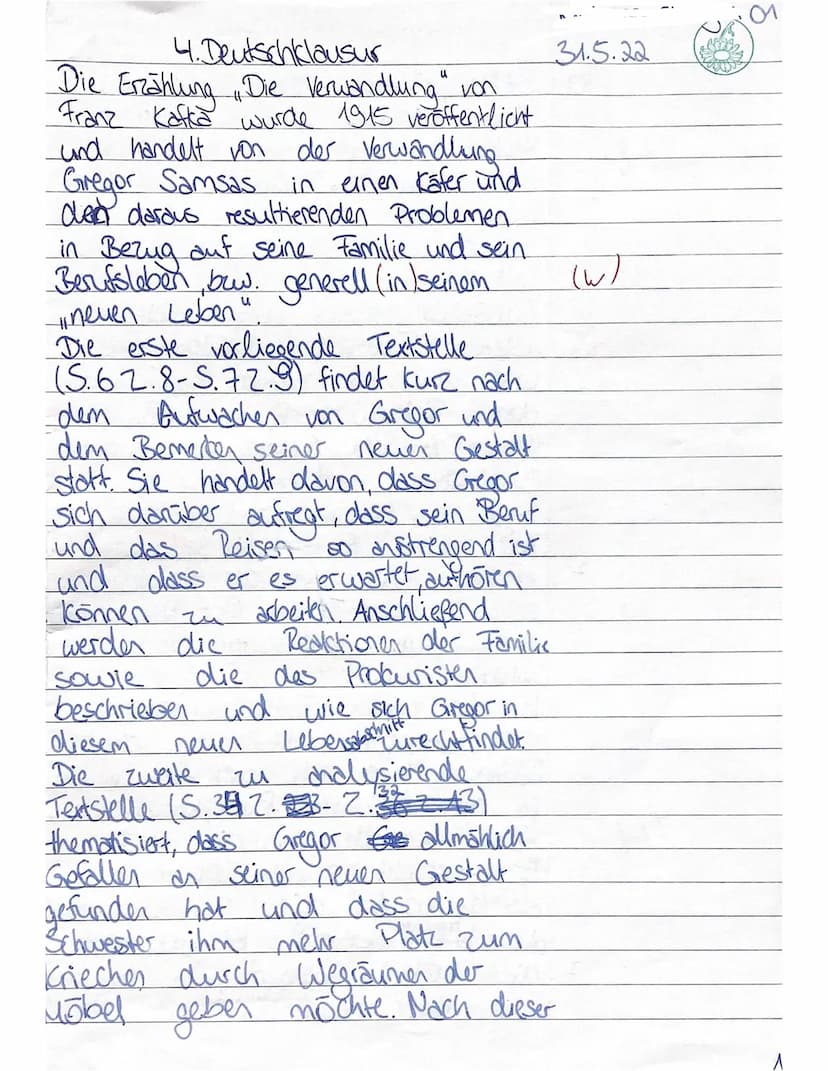 01
4. Deutschklausur 31.5.22
Die Erzählung „Die Verwandlung" von
Franz Kafka wurde 1915 veröffentlicht
und handelt von der Verwandlung
Gregor Samsas in einen Käfer und
den daraus resultierenden Problemen
in Bezug auf seine Familie und sein
Berufsleben, bzw. generell (in) seinem (W)
„neuen Leben".
Die erste vorliegende Textstelle
(S.6 Z.8-S.7 Z.9) findet kurz nach
dem Aufwachen von Gregor und
dem Bemerken seiner neuen Gestalt
statt. Sie handelt davon, dass Gregor
sich darüber aufregt, dass sein Beruf
und das Reisen so anstrengend ist
und dass er es erwartet, aufhören
können zu arbeiten. Anschließend
werden die Reaktionen der Familie
sowie die des Prokuristen
beschrieben und wie sich Gregor in
diesem neuen Lebensabschnitt zurechtfindet.
Die zweite zu analysierende
Textstelle (S.3 Z. 3- Z.32)
thematisiert, dass Gregor allmählich
Gefallen an seiner neuen Gestalt
gefunden hat und dass die
Schwester ihm mehr Platz zum
Kriechen durch Wegräumen der
Möbel geben möchte. Nach dieser
1